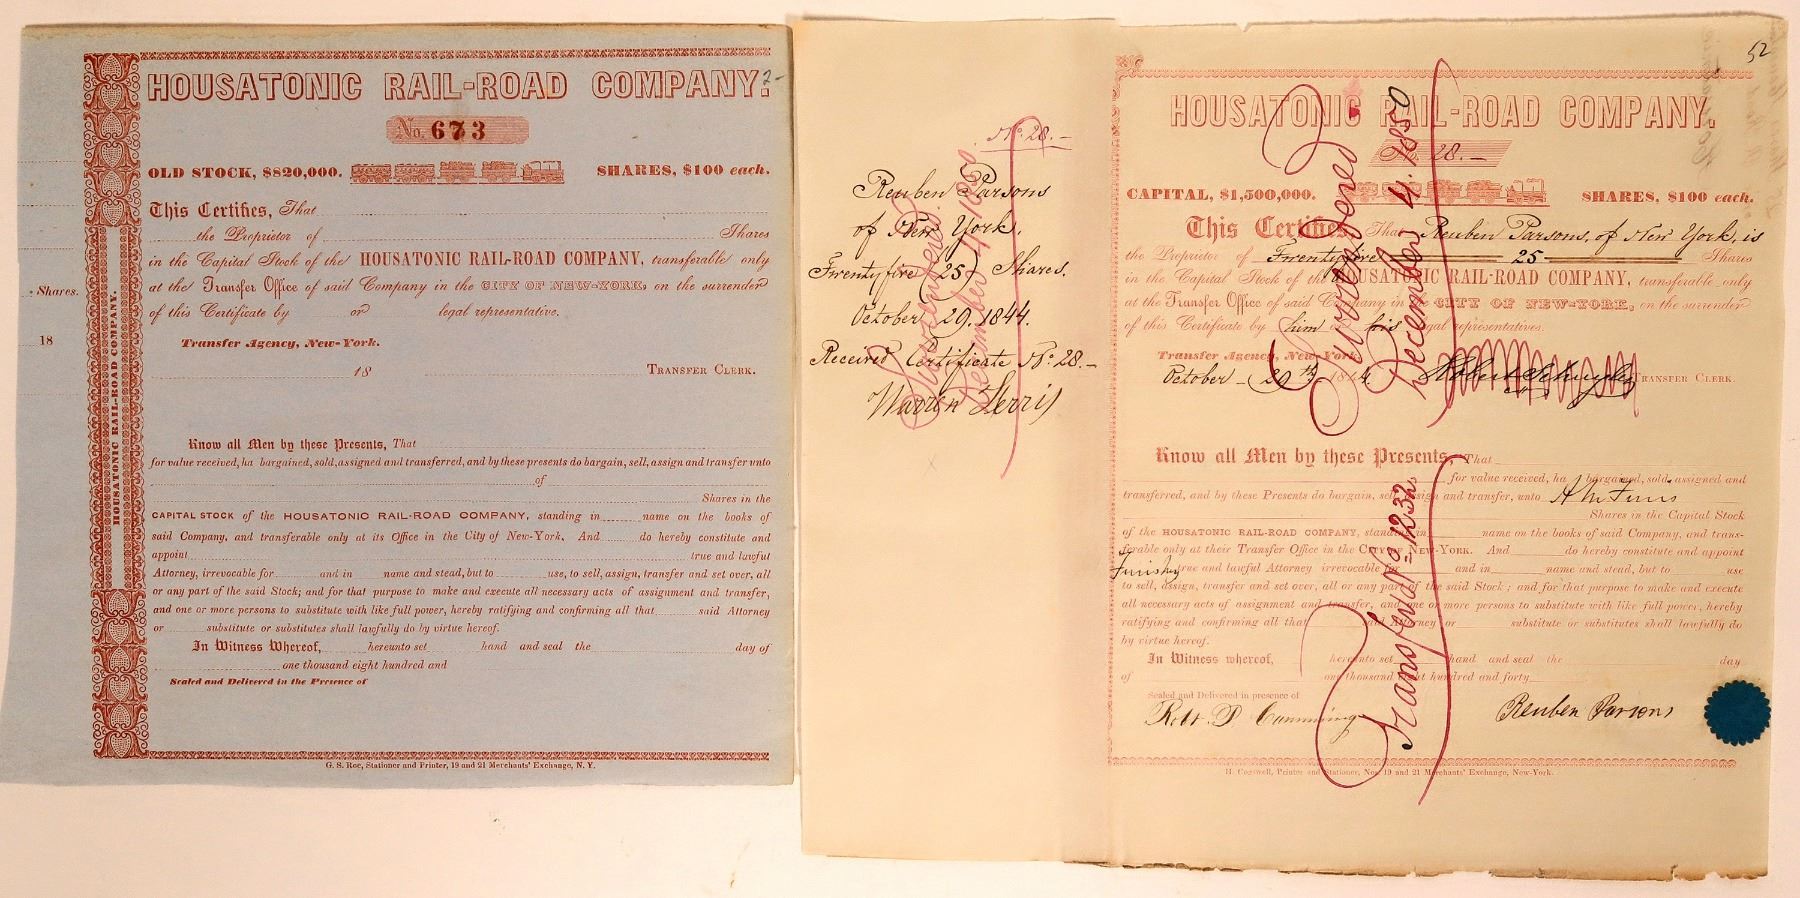 HOUSATONIC RAIL-ROAD COMPANY.
2-
No. 673
OLD STOCK, $820,000. SHARES, $100 each.
This Certifies, That
the Proprietor of Shares
in the Capital Stock of the HOUSATONIC RAIL-ROAD COMPANY, transferable only
at the Transfer Office of said Company in the CITY OF NEW-YORK, on the surrender
of this Certificate by or legal representative.
Transfer Agency, New-York.
18 TRANSFER CLERK.
Know all Men by these Presents, That
for value received, ha bargained, sold, assigned and transferred, and by these presents do bargain, sell, assign and transfer unto
of
Shares in the
CAPITAL STOCK of the HOUSATONIC RAIL-ROAD COMPANY, standing in name on the books of
said Company, and transferable only at its Office in the City of New-York. And do hereby constitute and
appoint true and lawful
Attorney, irrevocable for and in name and stead, but to use, to sell, assign, transfer and set over, all
or any part of the said Stock; and for that purpose to make and execute all necessary acts of assignment and transfer,
and one or more persons to substitute with like full power, hereby ratifying and confirming all that said Attorney
or substitute or substitutes shall lawfully do by virtue hereof.
In Witness Whereof, hereunto set hand and seal the day of
one thousand eight hundred and
Sealed and Delivered in the Presence of
G. S. Roe, Stationer and Printer, 19 and 21 Merchants' Exchange, N. Y.
HOUSATONIC RAIL-ROAD COMPANY.
Shares.
18
No. 28.-
Reuben Parsons
of New York.
Twentyfive (25) Shares.
October 29. 1844.
Received Certificate No. 28.-
Warren Ferris
Surrendered
December 4 1850
52
HOUSATONIC RAIL-ROAD COMPANY.
No. 28.-
CAPITAL, $1,500,000. SHARES, $100 each.
This Certifies That Reuben Parsons, of New York, is
the Proprietor of Twentyfive 25 Shares
in the Capital Stock of the HOUSATONIC RAIL-ROAD COMPANY, transferable only
at the Transfer Office of said Company in the CITY OF NEW-YORK, on the surrender
of this Certificate by him or his legal representatives.
Transfer Agency, New York
October 29th 1844. TRANSFER CLERK.
Know all Men by these Presents, That
for value received, ha bargained, sold, assigned and
transferred, and by these Presents do bargain, sell, assign and transfer, unto
Shares in the Capital Stock
of the HOUSATONIC RAIL-ROAD COMPANY, standing in name on the books of said Company, and trans-
ferable only at their Transfer Office in the CITY OF NEW-YORK. And do hereby constitute and appoint
true and lawful Attorney irrevocable for and in name and stead, but to use
to sell, assign, transfer and set over, all or any part of the said Stock; and for that purpose to make and execute
all necessary acts of assignment and transfer, and one or more persons to substitute with like full power, hereby
ratifying and confirming all that said Attorney or substitute or substitutes shall lawfully do
by virtue hereof.
In Witness whereof, hereunto set hand and seal the day
of one thousand eight hundred and forty
Sealed and Delivered in presence of
Robt P Cumming Reuben Parsons
H. Cogswell, Printer and Stationer, Nos. 19 and 21 Merchants' Exchange, New-York.
Surrendered
December 4. 1850
Transfer No 1232